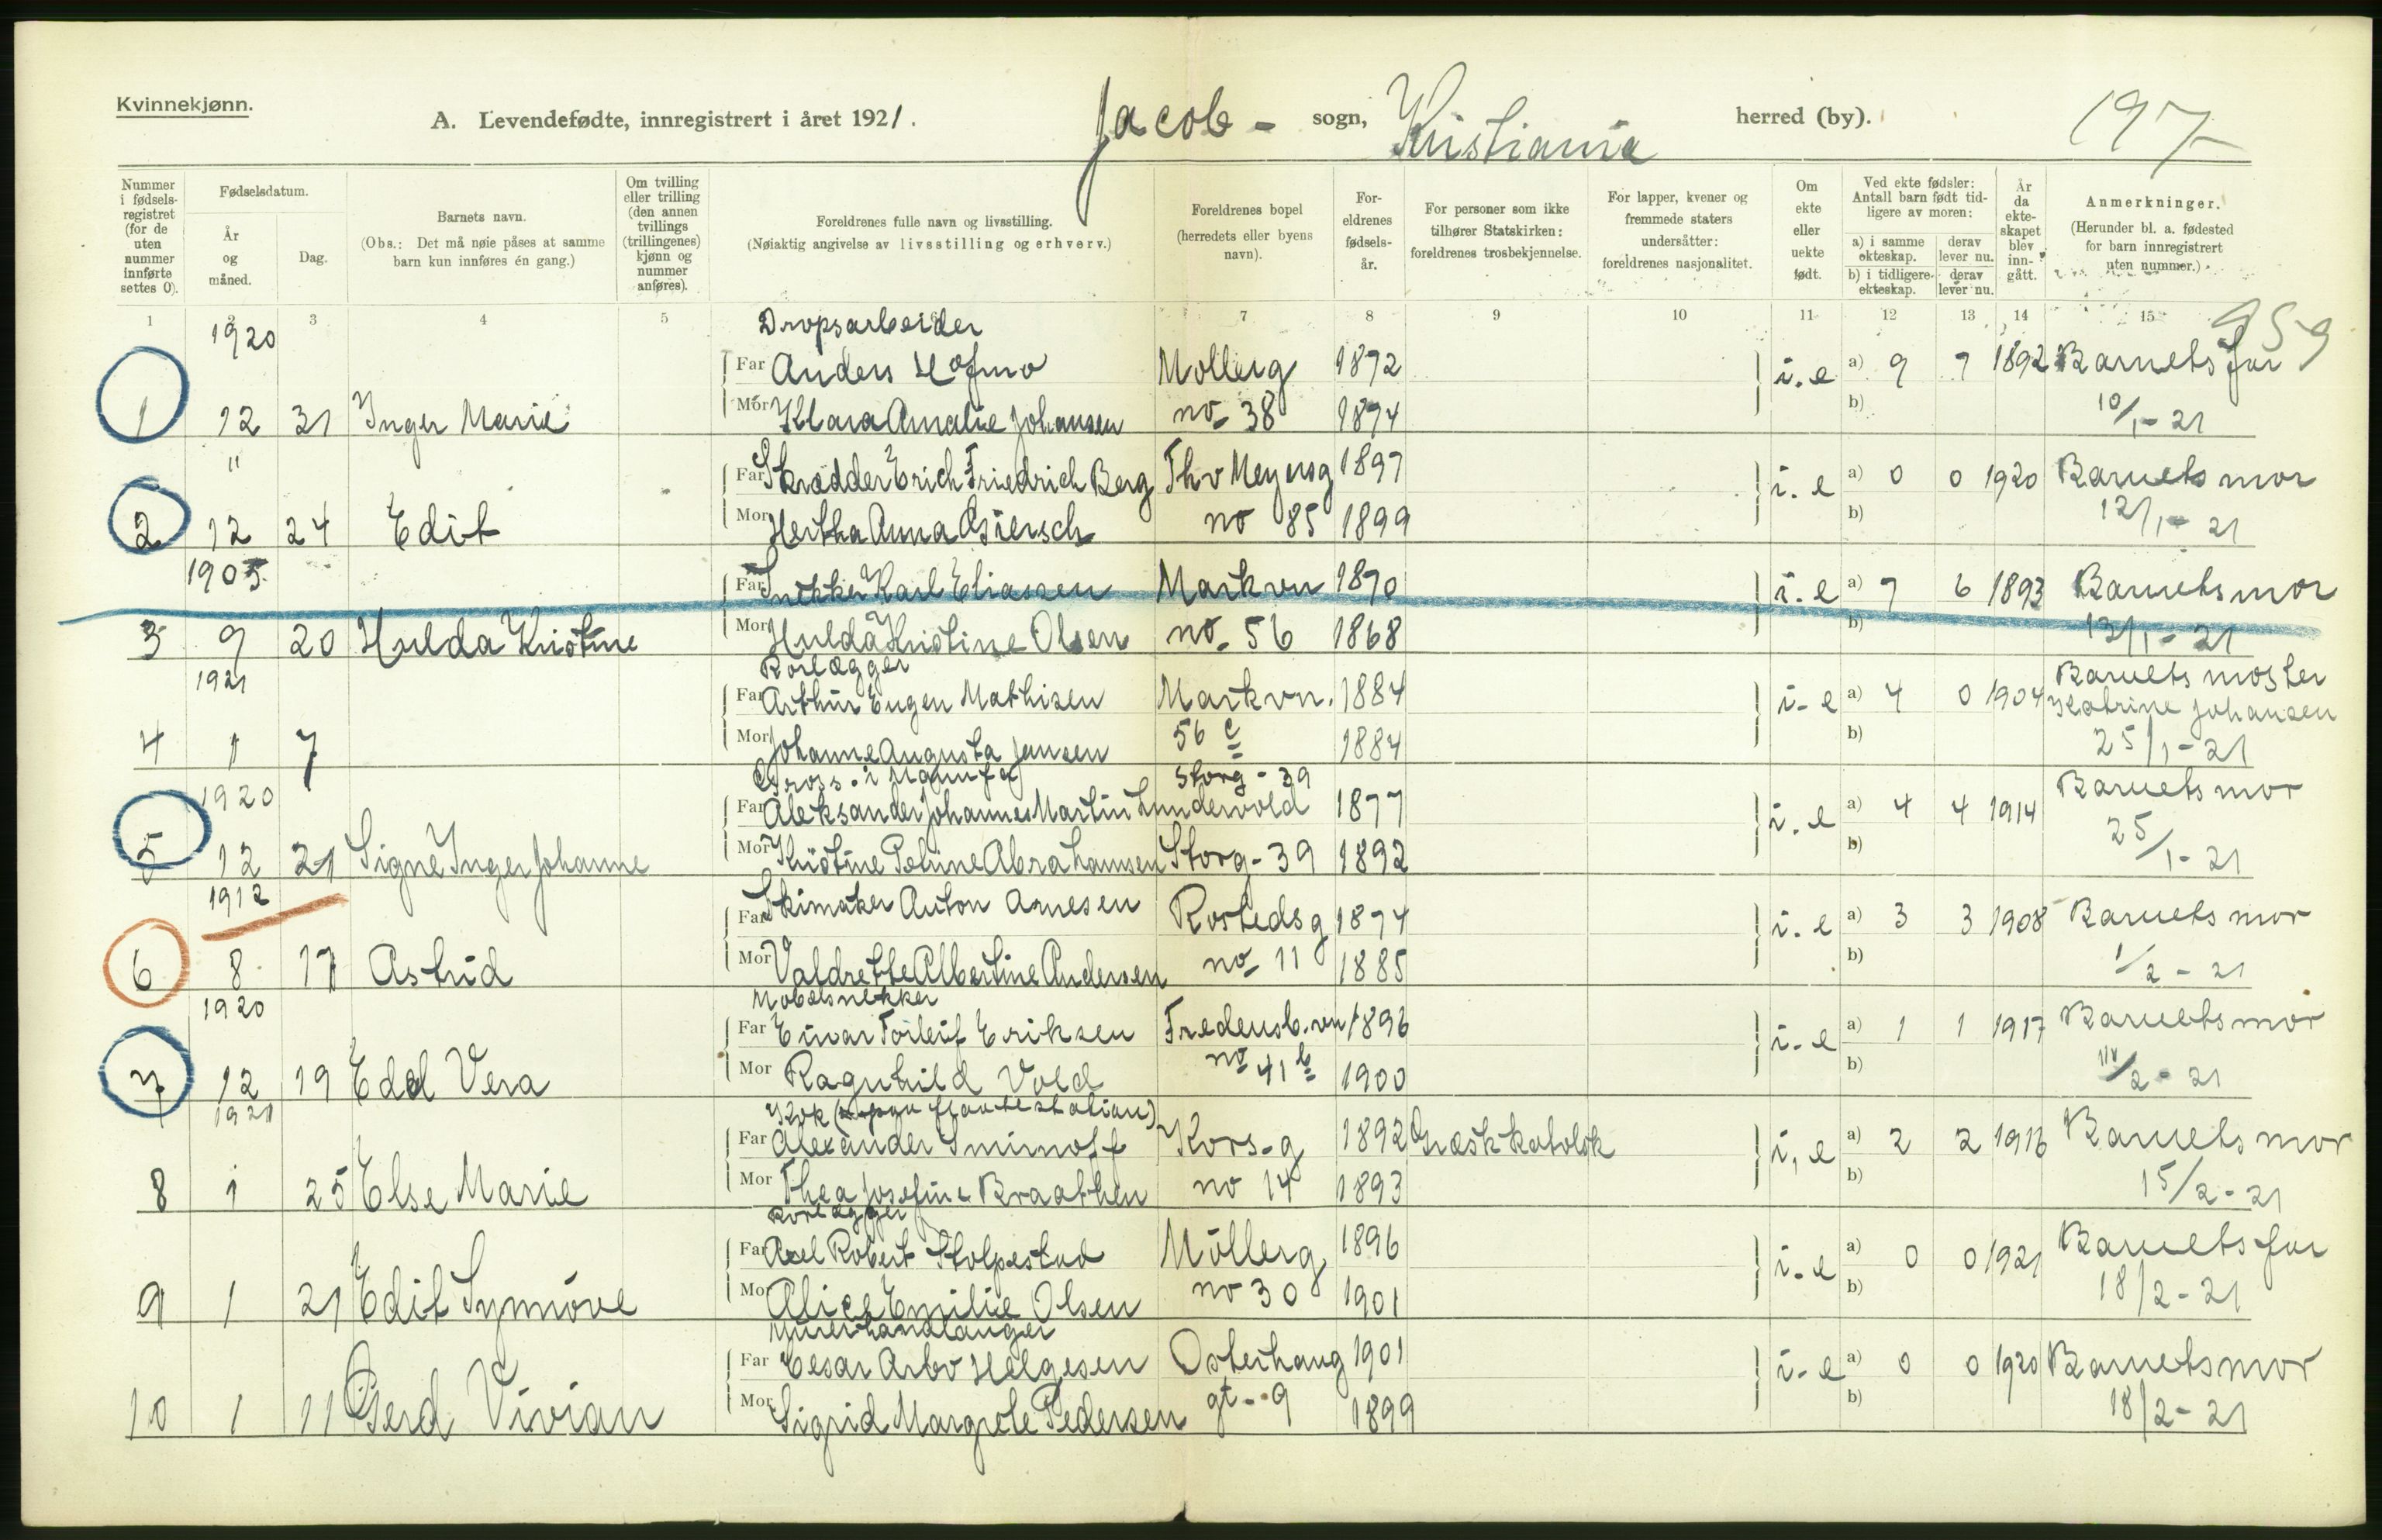 Kvinnekjønn.
A. Levendefødte, innregistrert i året 1921. Jacob - sogn, Kristiania herred (by). 197
Nummer i fødselsregistret (for de uten nummer innførte settes 0).
Fødselsdatum.
År og måned.
Dag.
Barnets navn.
(Obs.: Det må nøie påses at samme barn kun innføres én gang.)
Om tvilling eller trilling (den annen tvillings (trillingenes) kjønn og nummer anføres).
Foreldrenes fulle navn og livsstilling.
(Nøiaktig angivelse av livsstilling og erhverv.)
Foreldrenes bopel (herredets eller byens navn).
Foreldrenes fødselsår.
For personer som ikke tilhører Statskirken: foreldrenes trosbekjennelse.
For lapper, kvener og fremmede staters undersåtter: foreldrenes nasjonalitet.
Om ekte eller uekte født.
Ved ekte fødsler: Antall barn født tidligere av moren:
a) i samme ekteskap. derav lever nu.
b) i tidligere ekteskap. derav lever nu.
År da ekteskapet blev inngått.
Anmerkninger.
(Herunder bl. a. fødested for barn innregistrert uten nummer.)
1 2 3 4 5 7 8 9 10 11 12 13 14 15
959
1920 Dropsarbeider
Far Anders Hofmo Mollerg 1872 i. e a) 9 7 1892 Barnets far
1 12 31 Inger Marie Mor Klara Amalie Johansen no 38 1874 b) 10/1 - 21
" Far Skrædder Erich Friedrich Berg Thv Meyersg 1897 i. e a) 0 0 1920 Barnets mor
2 12 24 Edit Mor Hertha Anna Giersch no 85 1899 b) 12/1 - 21
1905 Far Snekker Karl Eliassen Markvn 1870 i. e a) 7 6 1893 Barnets mor
3 9 20 Hulda Kristine Mor Hulda Kristine Olsen no. 56 1868 b) 13/1 - 21
1921 Rørlægger
Far Arthur Eugen Mathisen Markvn. 1884 i - e a) 4 0 1904 Barnets moster Katrine Johansen
4 1 7 Mor Johanne Augusta Jensen 56 c 1884 b) 25/1 - 21
1920 Gross. i Manuf Storg - 39
Far Aleksander Johannes Martin Lundervold 1877 i. e a) 4 4 1914 Barnets mor
5 12 21 Signe Inger Johanne Mor Kristine Poline Abrahamsen Storg - 39 1892 b) 25/1 - 21
1912 Far Skimaker Anton Arnesen Rostedsg 1874 i. e a) 3 3 1908 Barnets mor
6 8 17 Astrid Mor Valdrette Albertine Andersen no 11 1885 b) 1/2 - 21
1920 Mobelsnekker
Far Einar Torleif Eriksen Fredensb. vn 1896 i - e a) 1 1 1917 Barnets mor
7 12 19 Edel Vera Mor Ragnhild Vold no 41 b 1900 b) /2 - 21
1921 Kok
Far Alexander Smirnoff Kors - g 1892 Græsk katolsk i, e a) 2 2 1916 Barnets mor
8 1 25 Else Marie Mor Thea Josefine Braathen no 14 1893 b) 15/2 - 21
Rørlægger
Far Axel Robert Stolpestad Möllerg 1896 i. e a) 0 0 1921 Barnets far
9 1 21 Edit Synnöve Mor Alice Emilie Olsen no 30 1901 b) 18/2 - 21
Murerhandlanger
Far Cesar Arbo Helgesen Osterhaug 1901 i - e a) 0 0 1920 Barnets mor
10 1 11 Gerd Vivian Mor Sigrid Margrete Pedersen gt - 9 1899 b) 18/2 - 21